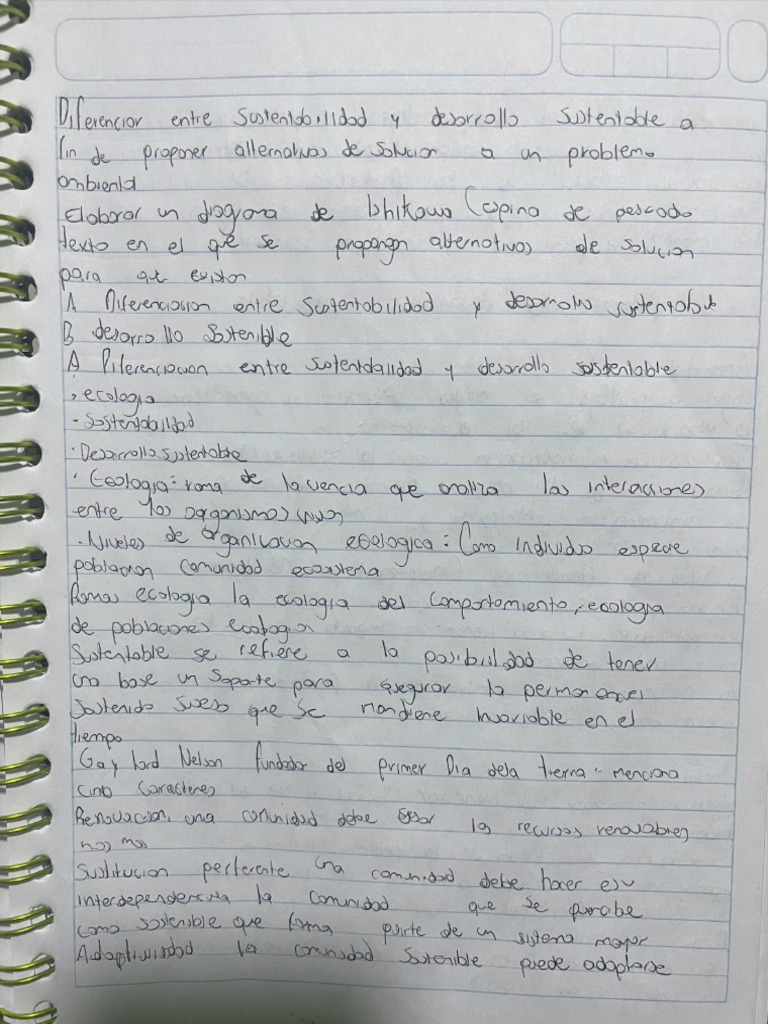 Diferenciar entre Sustentabilidad y desarrollo sustentable a
fin de proponer alternativas de solucion a un problema
ambiental
Elaborar un diagrama de Ishikawa (espina de pescado
texto en el que se propongan alternativas de solucion
para que existan
A Diferenciacion entre Sustentabilidad y desarrollo sustentable
B desarrollo Sostenible
A Diferenciacion entre sustentabilidad y desarrollo sustentable
, ecologia
- Sostentabilidad
· Desarrollo sustentable
· Ecologia = rama de la ciencia que analiza las interacciones
entre los organismos vivos
. Niveles de organizacion ecologica: Como individuo especie
poblacion comunidad ecosistema
Ramas ecologia la ecologia del comportamiento, ecologia
de poblaciones ecologia
Sustentable se refiere a la posibilidad de tener
una base un soporte para asegurar la permanencia
Sostenido suceso que se mantiene invariable en el
tiempo
Gaylord Nelson fundador del primer Dia dela tierra - menciona
cinco caracteres
Renovacion, una comunidad debe usar los recursos renovables
no mas
Sustitucion una comunidad debe hacer
interdependencia la comunidad que se percibe
como sostenible que forma parte de un sistema mayor
Adaptividad la comunidad Sostenible puede adaptarse